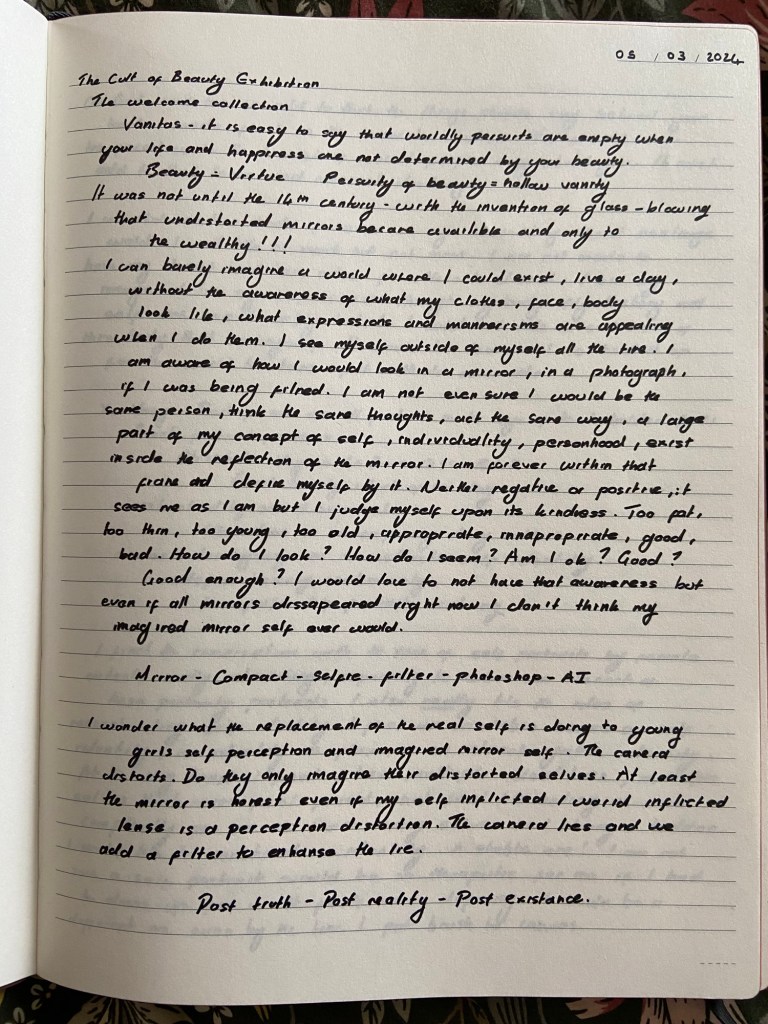 05 / 03 / 2024
The Cult of Beauty Exhibition
The welcome collection
Vanitas - it is easy to say that worldly persuits are empty when
your life and happiness are not determined by your beauty.
Beauty = Virtue Persuity of beauty = hollow vanity
It was not until the 14th century - with the invention of glass-blowing
that undistorted mirrors became availible and only to
the wealthy!!!
I can barely imagine a world where I could exist, live a day,
without the awareness of what my clothes, face, body
look like, what expressions and mannerisms are appealing
when I do them. I see myself outside of myself all the time. I
am aware of how I would look in a mirror, in a photograph,
if I was being filmed. I am not even sure I would be the
same person, think the same thoughts, act the same way, a large
part of my concept of self, individuality, personhood, exist
inside the reflection of the mirror. I am forever within that
frame and define myself by it. Neither negative or positive, it
sees me as I am but I judge myself upon its kindness. Too fat,
too thin, too young, too old, appropriate, innapropriate, good,
bad. How do I look? How do I seem? Am I ok? Good?
Good enough? I would love to not have that awareness but
even if all mirrors dissapeared right now I don't think my
imagined mirror self ever would.
Mirror - Compact - selfie - filter - photoshop - AI
I wonder what the replacement of the real self is doing to young
girls self perception and imagined mirror self. The camera
distorts. Do they only imagine their distorted selves. At least
the mirror is honest even if my self inflicted / world inflicted
lense is a perception distortion. The camera lies and we
add a filter to enhanse the lie.
Post truth - Post reality - Post existance.